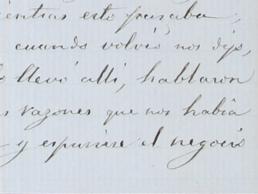 ientras esto pasaba,
cuando volvió nos dijo,
llevó allí, hablaron
s razones que nos había
y espusiese el negocio